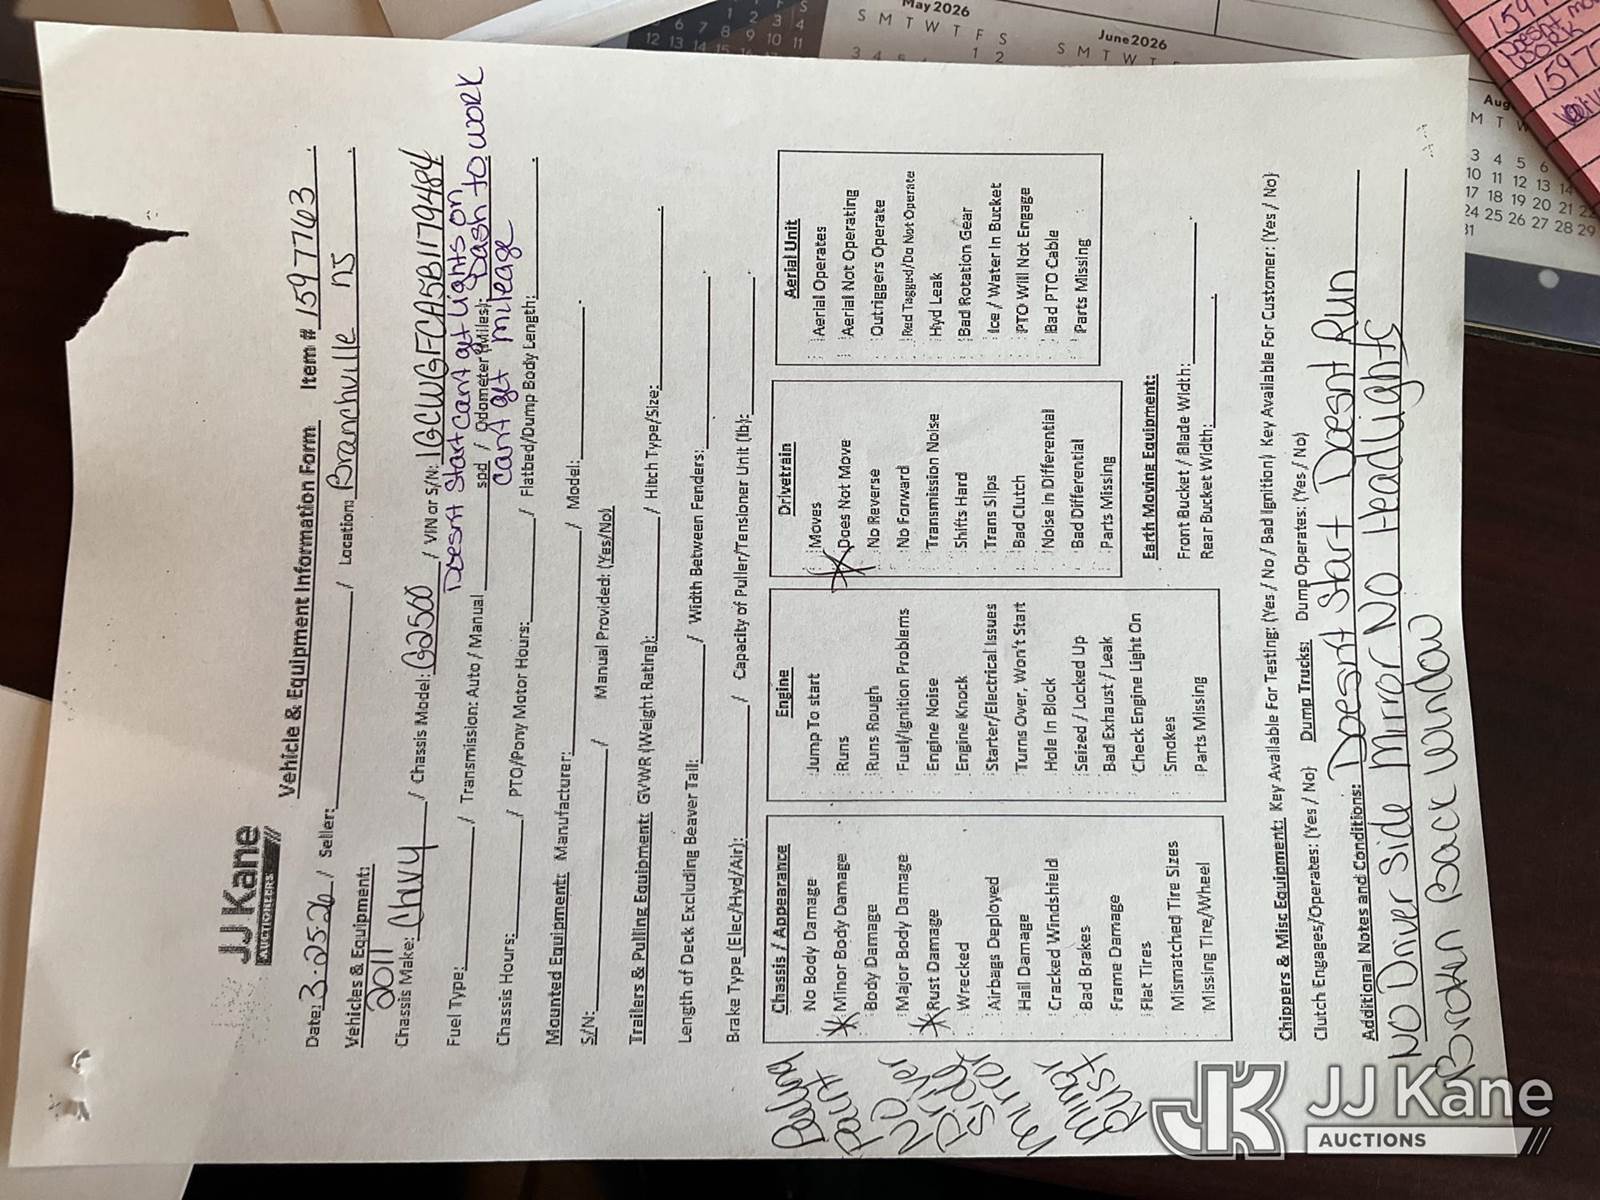 JJ Kane
AUCTIONEERS
Vehicle & Equipment Information Form Item # 1597763
Date: 3-25-26 / Seller: / Location: Branchville NJ
Vehicles & Equipment:
2011
Chassis Make: Chvy / Chassis Model: G2500 / VIN or S/N: 1GCWGFCA5B1179484
Doesnt Start cant get lights on
Fuel Type: / Transmission: Auto / Manual spd / Odometer (Miles): Dash to work
cant get mileage
Chassis Hours: / PTO/Pony Motor Hours: / Flatbed/Dump Body Length:
Mounted Equipment: Manufacturer: / Model:
S/N: / Manual Provided: (Yes/No)
Trailers & Pulling Equipment: GVWR (Weight Rating): / Hitch Type/Size:
Length of Deck Excluding Beaver Tail: / Width Between Fenders:
Brake Type (Elec/Hyd/Air): / Capacity of Puller/Tensioner Unit (lb):
Chassis / Appearance
No Body Damage
Minor Body Damage
Body Damage
Major Body Damage
Rust Damage
Wrecked
Airbags Deployed
Hail Damage
Cracked Windshield
Bad Brakes
Frame Damage
Flat Tires
Mismatched Tire Sizes
Missing Tire/Wheel
Paint
NO
Driver
Side
Mirror
Minor
Rust
Engine
Jump To start
Runs
Runs Rough
Fuel/Ignition Problems
Engine Noise
Engine Knock
Starter/Electrical Issues
Turns Over, Won't Start
Hole In Block
Seized / Locked Up
Bad Exhaust / Leak
Check Engine Light On
Smokes
Parts Missing
Drivetrain
Moves
Does Not Move
No Reverse
No Forward
Transmission Noise
Shifts Hard
Trans Slips
Bad Clutch
Noise In Differential
Bad Differential
Parts Missing
Aerial Unit
Aerial Operates
Aerial Not Operating
Outriggers Operate
Red Tagged/Do Not Operate
Hyd Leak
Bad Rotation Gear
Ice / Water In Bucket
PTO Will Not Engage
Bad PTO Cable
Parts Missing
Earth Moving Equipment:
Front Bucket / Blade Width:
Rear Bucket Width:
Chippers & Misc Equipment: Key Available For Testing: (Yes / No / Bad Ignition) Key Available For Customer: (Yes / No)
Clutch Engages/Operates: (Yes / No) Dump Trucks: Dump Operates: (Yes / No)
Additional Notes and Conditions: Doesnt Start Doesnt Run
NO Driver Side Mirror NO Headlights
Broken Back Window
May 2026
S M T W T F S
1 2
June 2026
S M T W T
1 2 3 4
6 7 8 9 10 11
12 13 14 15
Aug
M T W
3 4 5 6
10 11 12 13 14
17 18 19 20 21 22
24 25 26 27 28 29
31
Doesnt
work
1597
JJ Kane
AUCTIONS